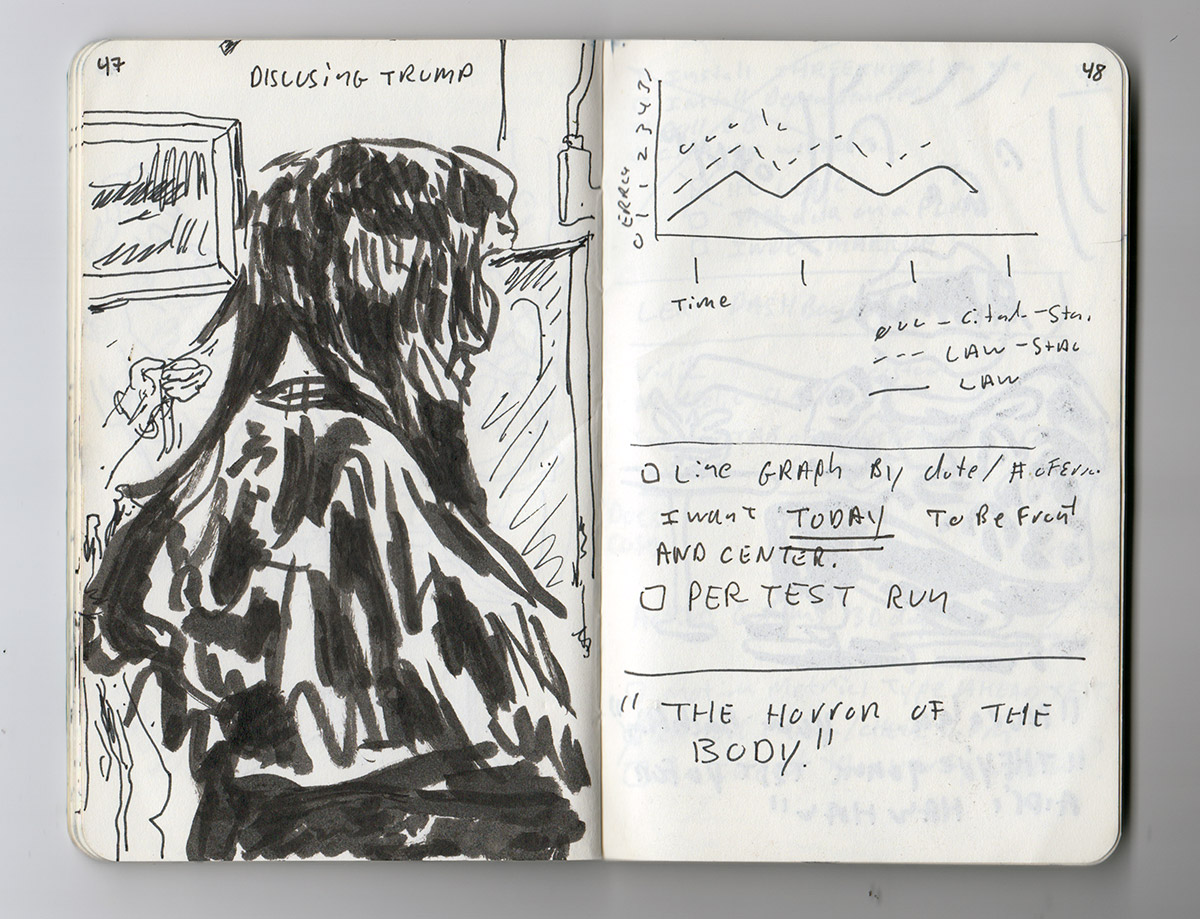 47
DISCUSING TRUMP
48
0 1 2 3 4 5
Time
LAW
LINE GRAPH BY date/#
I want TODAY TO BE Front
AND CENTER.
PER TEST RUN
"THE HORROR OF THE
BODY."